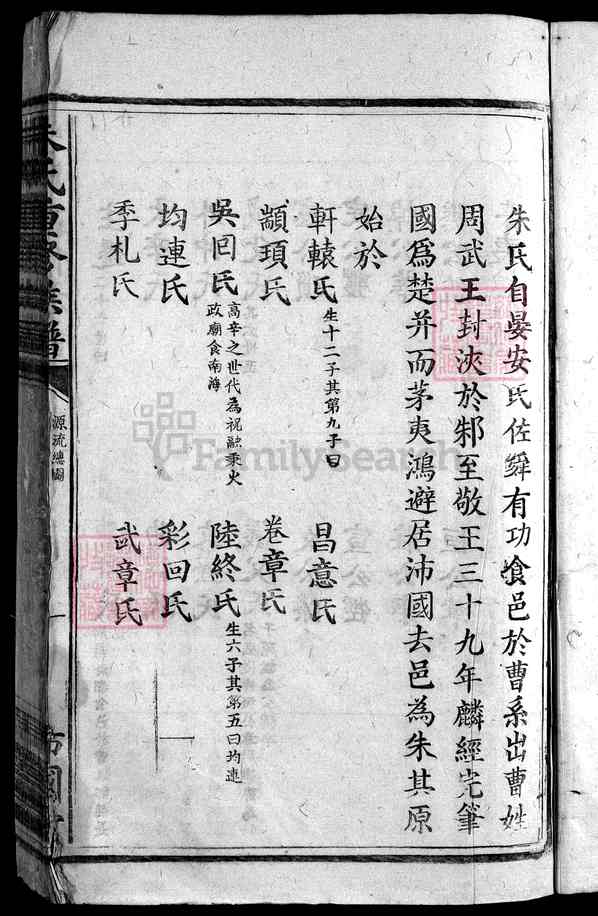 朱氏自晏安氏佐舜有功飡邑於曹系出曹姓
周武王封浹於邾至敬王三十九年麟經完筆
國爲楚并而茅夷鴻避居沛國去邑為朱其原
始於
軒轅氏生十二子其第九子曰 昌意氏
顓頊氏 卷章氏
吳回氏高辛之世代為祝融秉火政廟食南海 陸終氏生六子其第五曰均連
均連氏 彩回氏
季札氏 武章氏
朱氏重修族譜 源流總圖 一
FamilySearch